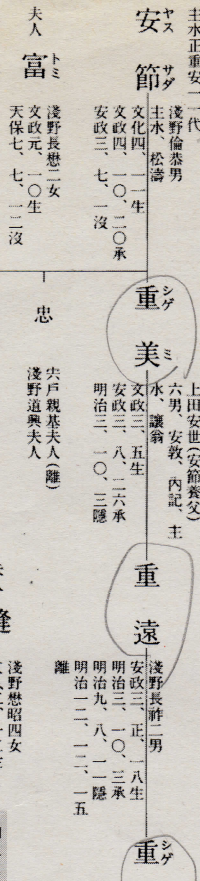 主水正重安一一代
安節
ヤスサダ
淺野倫恭男
主水、松濤
文化四、一一生
文政四、一〇、二〇承
安政三、七、一没
夫人
富
トミ
淺野長懋二女
文政元、一〇生
天保七、七、一二没
重美
シゲミ
上田安世(安節養父)
六男、安敦、內記、主
水、讓翁
文政三、五生
安政三、八、二六承
明治三、一〇、三隱
忠
宍戶親基夫人(離)
淺野道興夫人
重遠
淺野長祚二男
安政三、正、一八生
明治三、一〇、三承
明治九、八、一一隱
明治一二、一二、一五
離
縫
淺野懋昭四女
重
シゲ